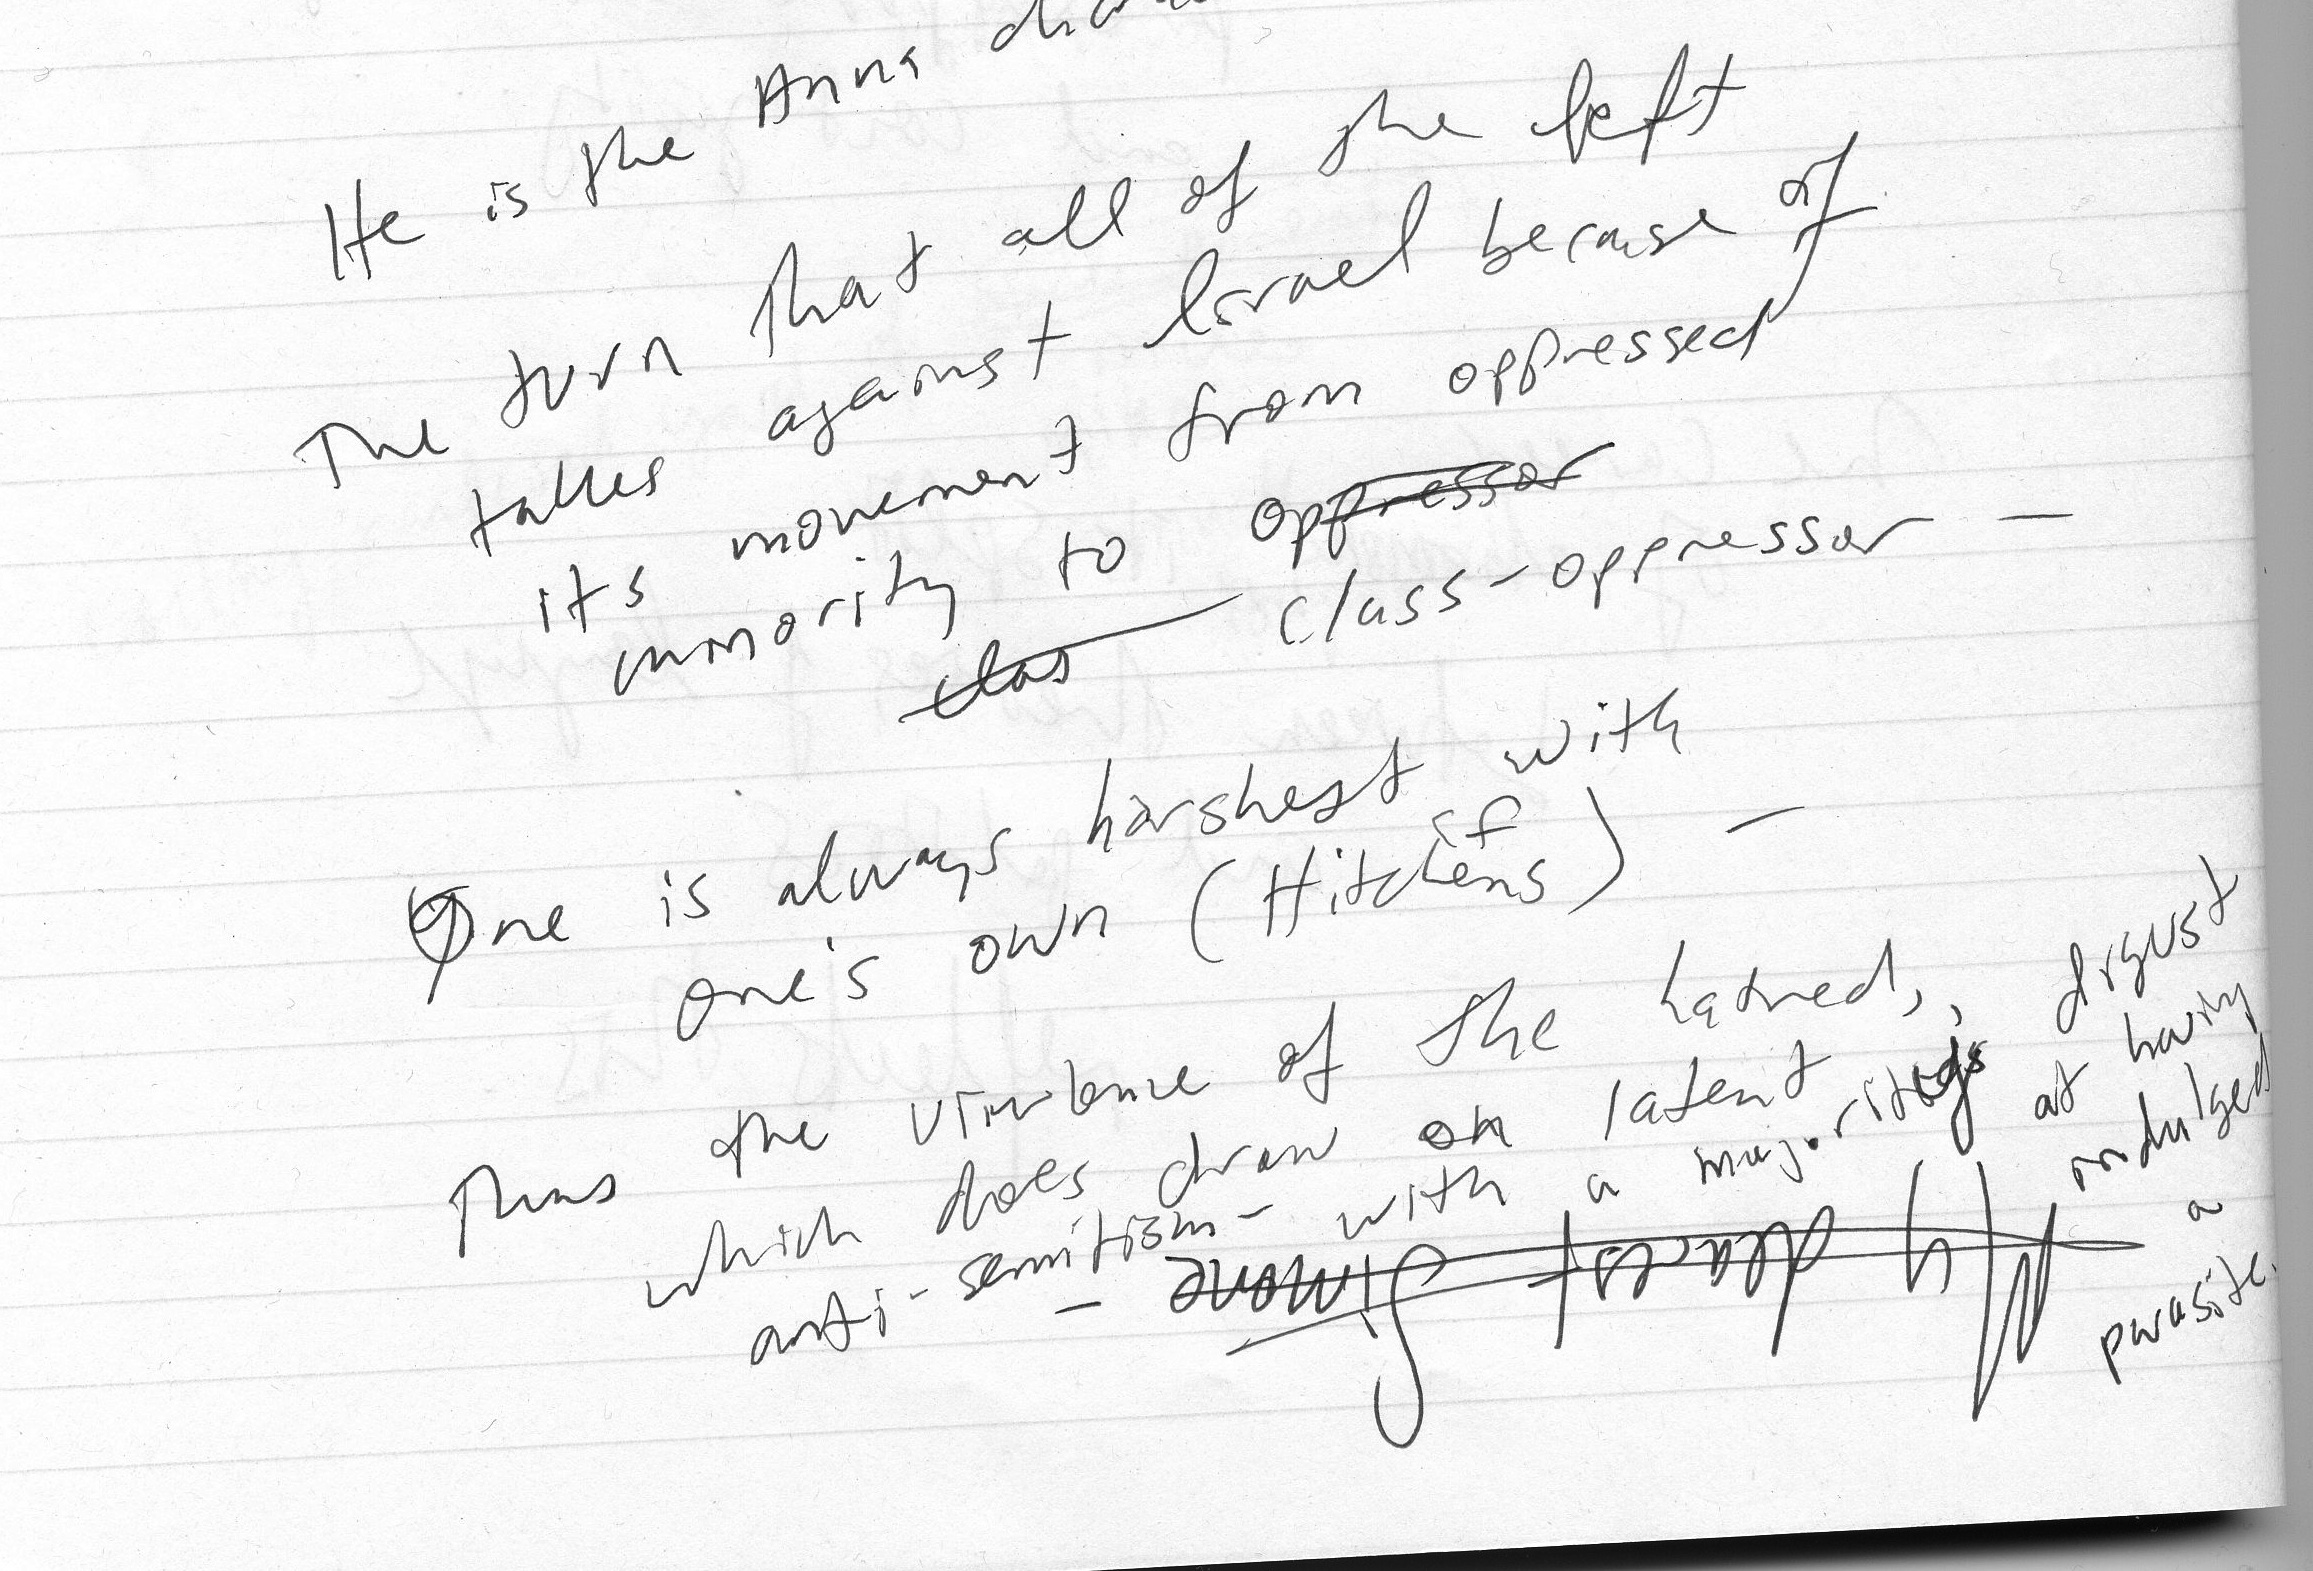 He is the Anna
The turn that all of the left
takes against Israel because of
its movement from oppressed
minority to oppressor
clas class-oppressor —
One is always harshest with
if
one's own (Hitchens) —
Thus the virulence of the hatred,
which does draw on latent
anti-semitism - with a majority's disgust
at having
indulged
a
parasite.
— My dearest Simone